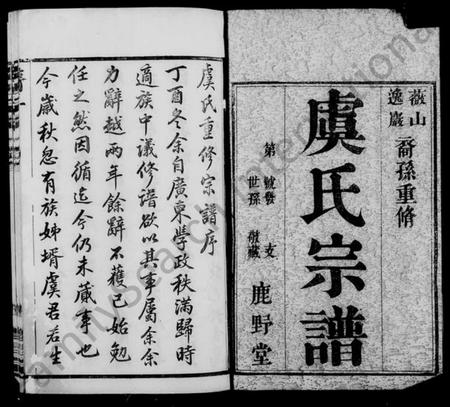 薇山
逸巖
裔孫重脩
虞氏宗譜
第 號發 支
世孫 敬藏
鹿野堂
虞氏重修宗譜序
丁酉冬余自廣東學政秩滿歸時
適族中議修譜欲以其事屬余余
力辭越兩年餘辭不獲已始勉
任之然因循迄今仍未蕆事也
今歲秋忽有族姊壻虞君若生
familysearch international